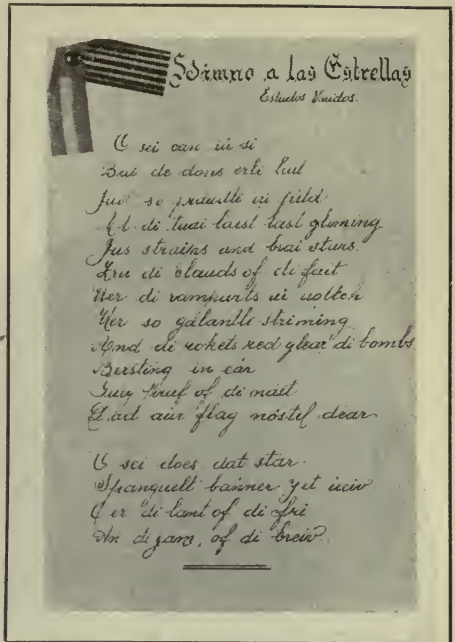 Himno a las Estrellas
Estados Unidos.
O sei can iu si
Bai de dons erli lait
Juat so praudli ui jield
At di tuai laist last gliming
Jus straips and brait stars.
Zru di clauds of di fait
Uer di ramparts ui uotch
Uer so galantli striming
And di rokets red glear di bombs
Bersting in ear
Guiv pruf of di nait
Dad aur flag nostil dear
O sei does dat star
Spanguelt banner yet ueiv
O er di land of di fri
An di jam, of di breiv.